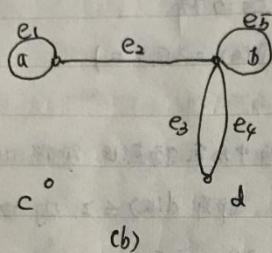 e₁
e₂
e₅
a
b
e₃ e₄
c
d
(b)